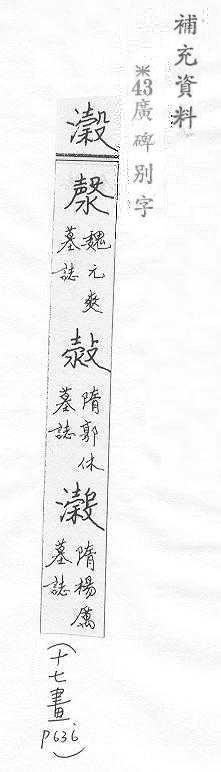 補充資料
※43廣碑別字
瀔
魏元爽
墓誌
隋郭休
墓誌
瀔
隋楊厲
墓誌
(十七畫、P636)